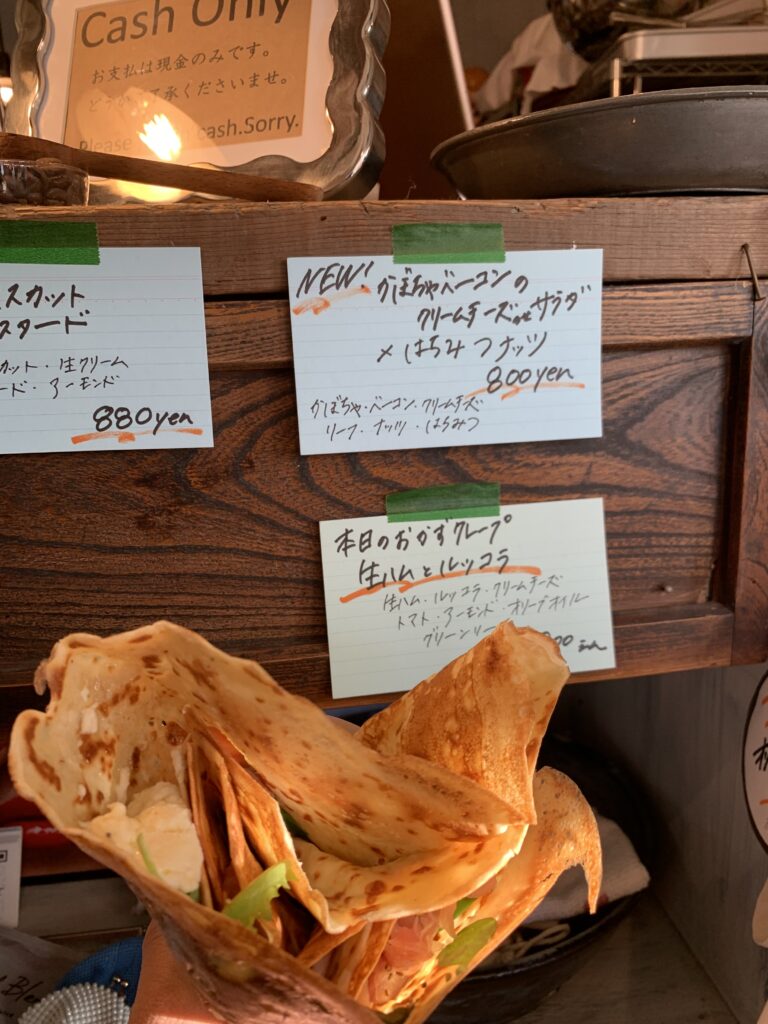 Cash Only
お支払は現金のみです。
承くださいませ。
Please cash.Sorry.
スカット
スタード
カット・生クリーム
ード・アーモンド
880yen
NEW! かぼちゃベーコンの
クリームチーズのせサラダ
×はちみつナッツ
800yen
かぼちゃ・ベーコン・クリームチーズ
リーフ・ナッツ・はちみつ
本日のおかずクレープ
生ハムとルッコラ
生ハム・ルッコラ・クリームチーズ
トマト・アーモンド・オリーブオイル
グリーンリー